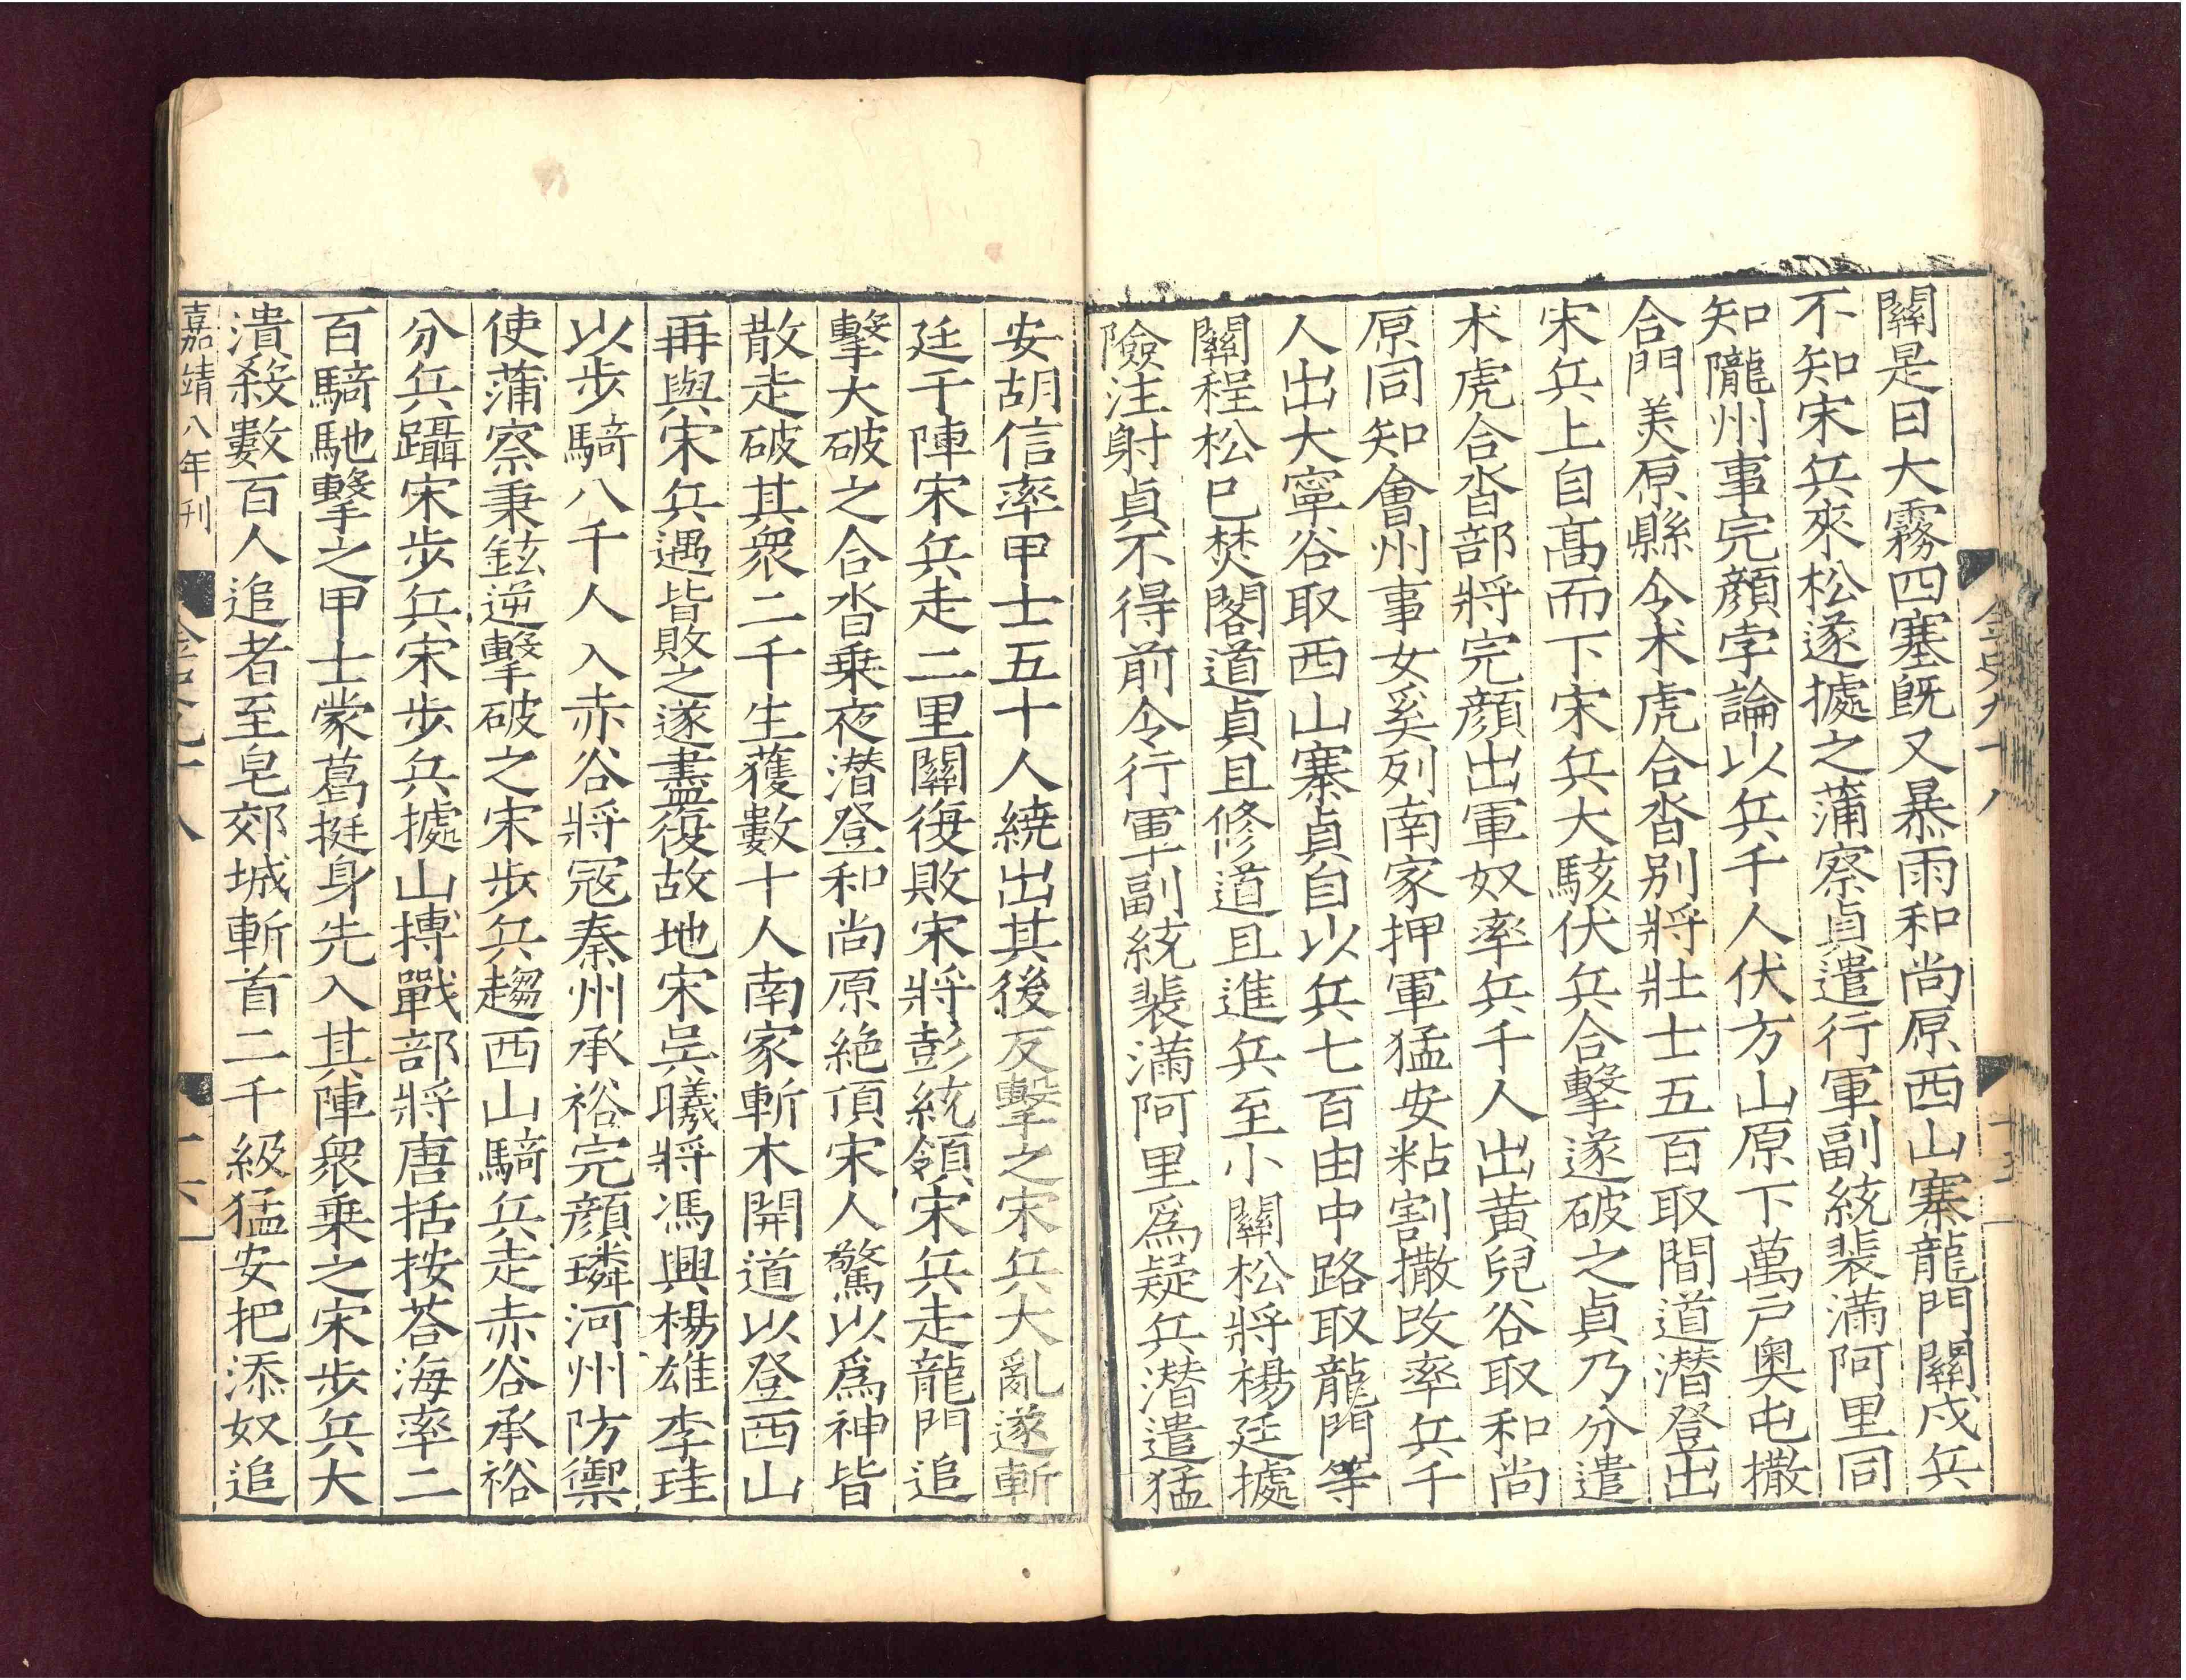 關是日大霧四塞既又暴雨和尚原西山寨龍門關戍兵
不知宋兵來松遂據之蒲察貞遣行軍副統裴滿阿里同
知隴州事完顏孛論以兵千人伏方山原下萬戶奧屯撒
合門美原縣令术虎合沓別將壯士五百取間道潛登出
宋兵上自高而下宋兵大駭伏兵合擊遂破之貞乃分遣
术虎合沓部將完顏出軍奴率兵千人出黃兒谷取和尚
原同知會州事女奚列南家押軍猛安粘割撒改率兵千
人出大寧谷取西山寨貞自以兵七百由中路取龍門等
關程松已焚閣道貞且修道且進兵至小關松將楊廷據
險注射貞不得前令行軍副統裴滿阿里爲疑兵潛遣猛
安胡信率甲士五十人繞出其後反擊之宋兵大亂遂斬
廷于陣宋兵走二里關復敗宋將彭統領宋兵走龍門追
擊大破之合沓乗夜潛登和尚原絶頂宋人驚以爲神皆
散走破其衆二千生獲數十人南家斬木開道以登西山
再與宋兵遇皆敗之遂盡復故地宋吳曦將馮興楊雄李珪
以步騎八千人入赤谷將冦秦州承裕完顏璘河州防禦
使蒲察秉鉉逆擊破之宋步兵趨西山騎兵走赤谷承裕
分兵躡宋步兵宋步兵據山搏戰部將唐括按荅海率二
百騎馳擊之甲士蒙葛挺身先入其陣衆乗之宋步兵大
潰殺數百人追者至皂郊城斬首二千級猛安把添奴追
嘉靖八年刊
金史九十八